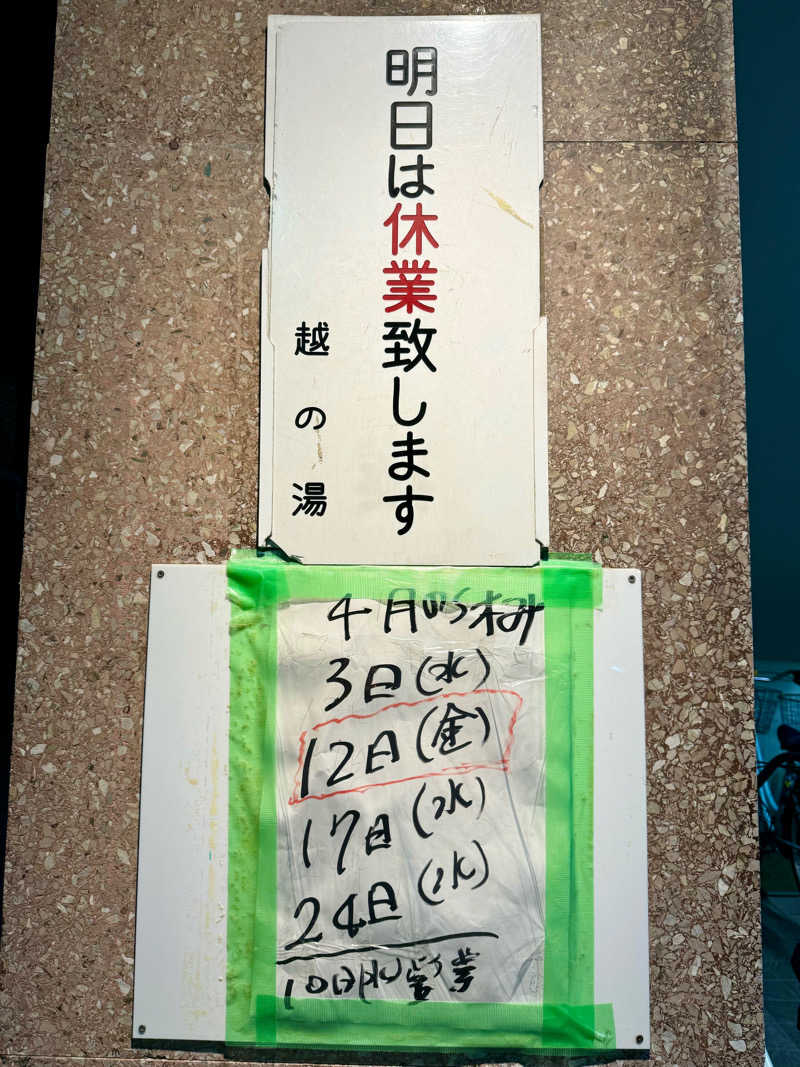 明日は休業致します
越の湯
4月の休み
3日(水)
12日(金)
17日(水)
24日(水)
10日(水)営業